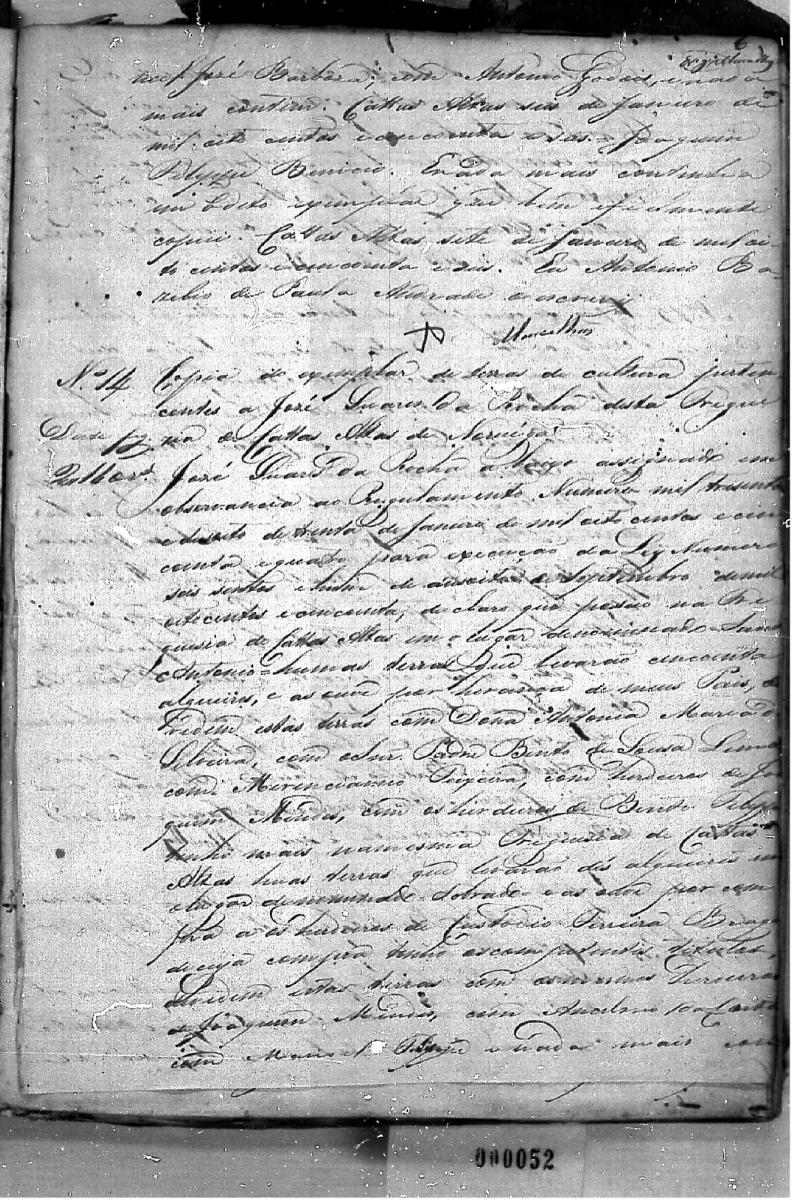 6
José Barbosa, com Antonio Godois, e nada
mais continha. Cattas Altas seis de Janeiro de
mil oito centos e cincoenta e seis. Joaquim
Felippe Benicio. E nada mais continha
em o dito exemplar que bem e fielmente
copiei. Cattas Altas, sete de Janeiro de mil oi-
to centos e cincoenta e seis. Eu Antonio Ba-
zilio de Paula Andrade o escrevi
No 14 Copia do exemplar de terras de cultura perten-
centes a José Duarte da Rocha desta Fregue
zia de Cattas Altas de Noruega
José Duarte da Rocha abaixo assignado em
observancia ao Regulamento Numero mil tresentos
e desoito de trinta de Janeiro de mil oito centos e cin
coenta e quatro para execução da Ley Numero
seis sentos e hum de desoito de Septembro de mil
oitocentos e cincoenta, declaro que possuo na Fre
guesia de Cattas Altas em o lugar denominado Santo
Antonio humas terras que levarão cincoenta
alqueires, e as ouve por herança de meus Pais, de
videm estas terras com Dona Antonia Maria de
Oliveira, com o Snr. Padre Bento de Sousa Lima
com Teixeira, com herdeiros de Joa
quim Mendes, com os herdeiros de Bento Felippe
tenho mais na mesma Freguesia de Cattas
Altas huas terras que levarão dés alqueires em
o lugar denominado Sobrado e as ouve por com
pra a os herdeiros de Custodio Ferreira Braga
de cuja compra tenho os competentes titulos,
devidem estas terras com os mesmos herdeiros
de Joaquim Mendes, com Anselmo da Costa
com Manoel Felippe e nada mais con
000052